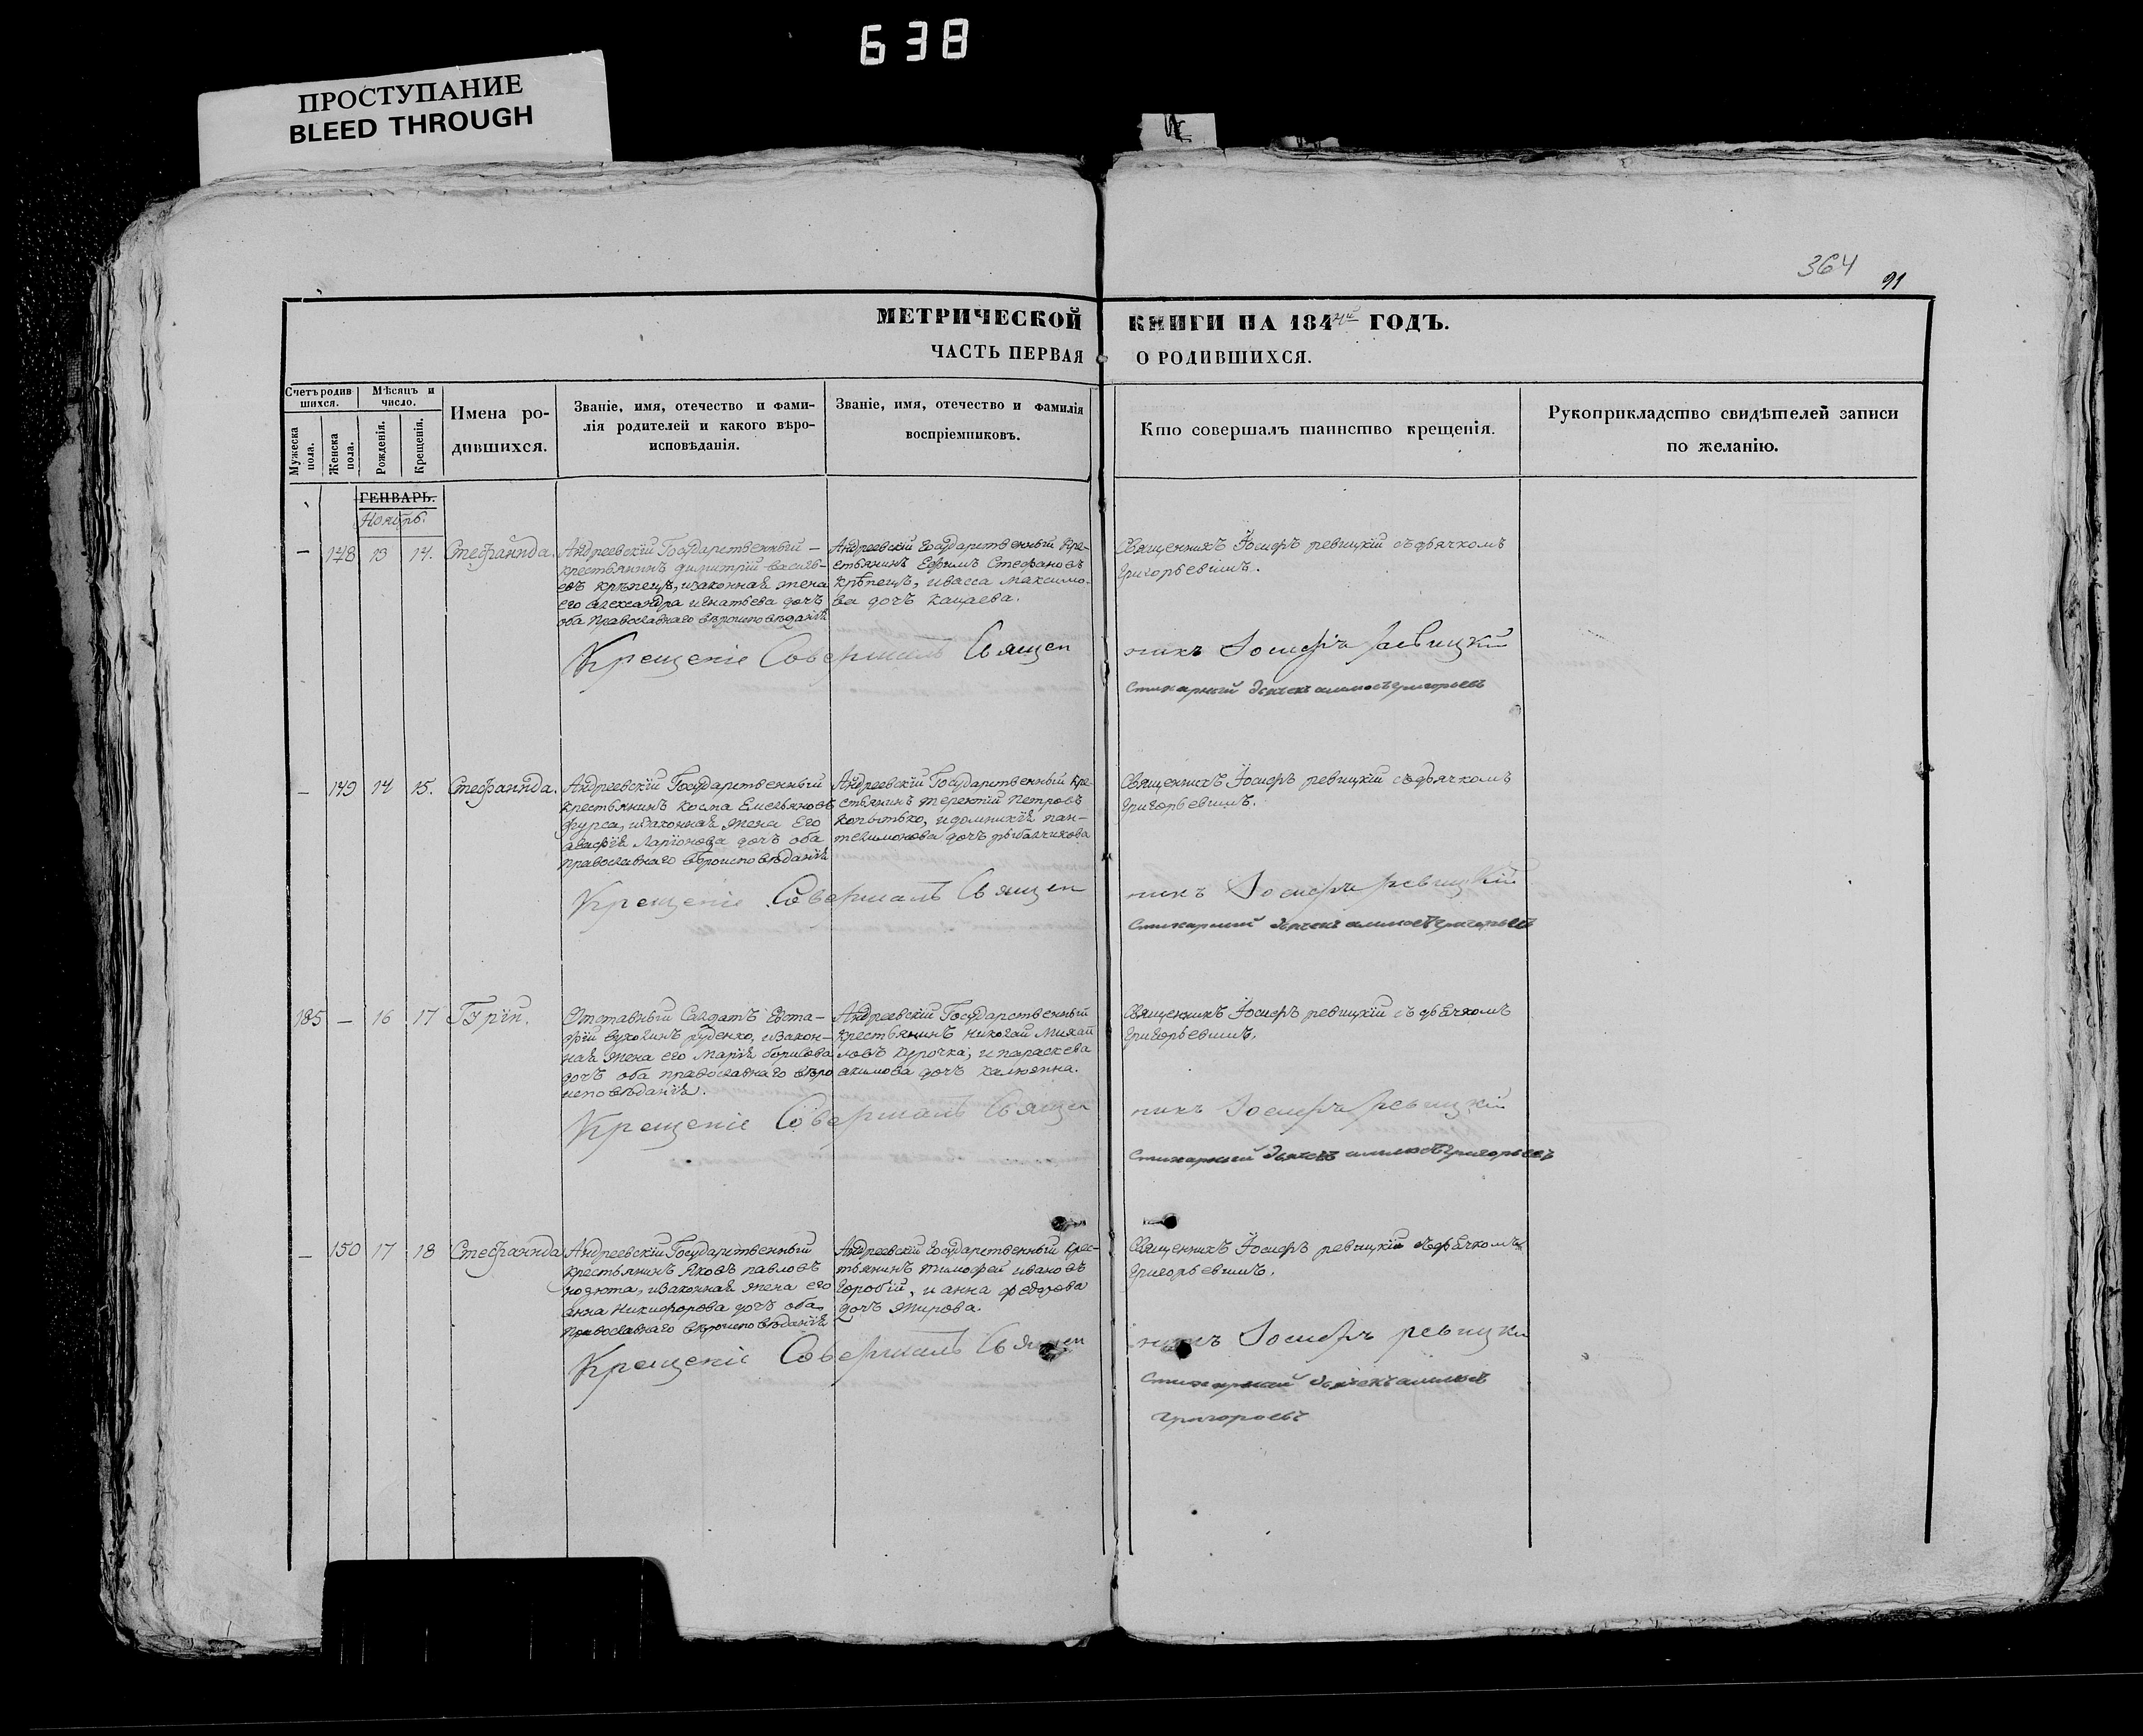 638
ПРОСТУПАНИЕ
BLEED THROUGH
364
91
МЕТРИЧЕСКОЙ КНИГИ НА 1844й ГОДЪ.
ЧАСТЬ ПЕРВАЯ О РОДИВШИХСЯ.
Счетъ родившихся.
Мужеска пола.
Женска пола.
Мѣсяцъ и число.
Рожденія.
Крещенія.
Имена родившихся.
Званіе, имя, отечество и фамилія родителей и какого вѣроисповѣданія.
Званіе, имя, отечество и фамилія воспріемниковъ.
Кто совершалъ таинство крещенія.
Рукоприкладство свидѣтелей записи по желанію.
ГЕНВАРЬ.
Ноябрь.
— 148 13 14. Стефанида.
Андреевскій Государственный
крестьянинъ Димитрій василь-
евъ крѣпецъ, изаконная жена
его александра игнатьева дочъ
оба Православнаго вѣроисповѣданія
Андреевскій Государственный Кре-
стьянинъ Ефимъ Стефановъ
Крѣпецъ, ивасса максимо-
ва дочъ кацаева.
Священникъ Іосифъ ревицкій съ дьячкомъ
Григорьевымъ.
Крещеніе Совершалъ Священникъ Іосифъ ревицкій
Стихарный дьячекъ Григорьевъ
— 149 14 15. Стефанида.
Андреевскій Государственный
крестьянинъ косма Емельяновъ
фурса, изаконная жена Его
агафія Ларіонова дочъ оба
православнаго вѣроисповѣданія
Андреевскій Государственный Кре-
стьянинъ терентій Петровъ
Копытько, идомникія пан-
телимонова дочъ рыбалчикова
Священникъ Іосифъ ревицкій съ дьячкомъ
Григорьевымъ.
Крещеніе Совершалъ Священникъ Іосифъ ревицкій
Стихарный дьячекъ Григорьевъ
185 — 16 17 Гурій.
Отставный Салдатъ Евста-
фій руденко, изакон-
ная жена его Марія борисова
дочъ оба православнаго вѣро
исповѣданія.
Андреевскій Государственный
Крестьянинъ николай Михай
ловъ Курочка, и параскева
акимова дочъ
Священникъ Іосифъ ревицкій съ дьячкомъ
Григорьевымъ.
Крещеніе Совершалъ Священникъ Іосифъ ревицкій
Стихарный дьячекъ Григорьевъ
— 150 17 18 Стефанида
Андреевскій Государственный
крестьянинъ Яковъ павловъ
изаконная жена его
анна Никифорова дочъ оба
Православнаго вѣроисповѣданія
Андреевскій Государственный крес-
тьянинъ тимофей ивановъ
Горобій, и анна федорова
дочъ жирова.
Священникъ Іосифъ ревицкій съ дьячкомъ
Григорьевымъ.
Крещеніе Совершалъ Священникъ Іосифъ ревицки
Стихарный дьячекъ
Григорьевъ